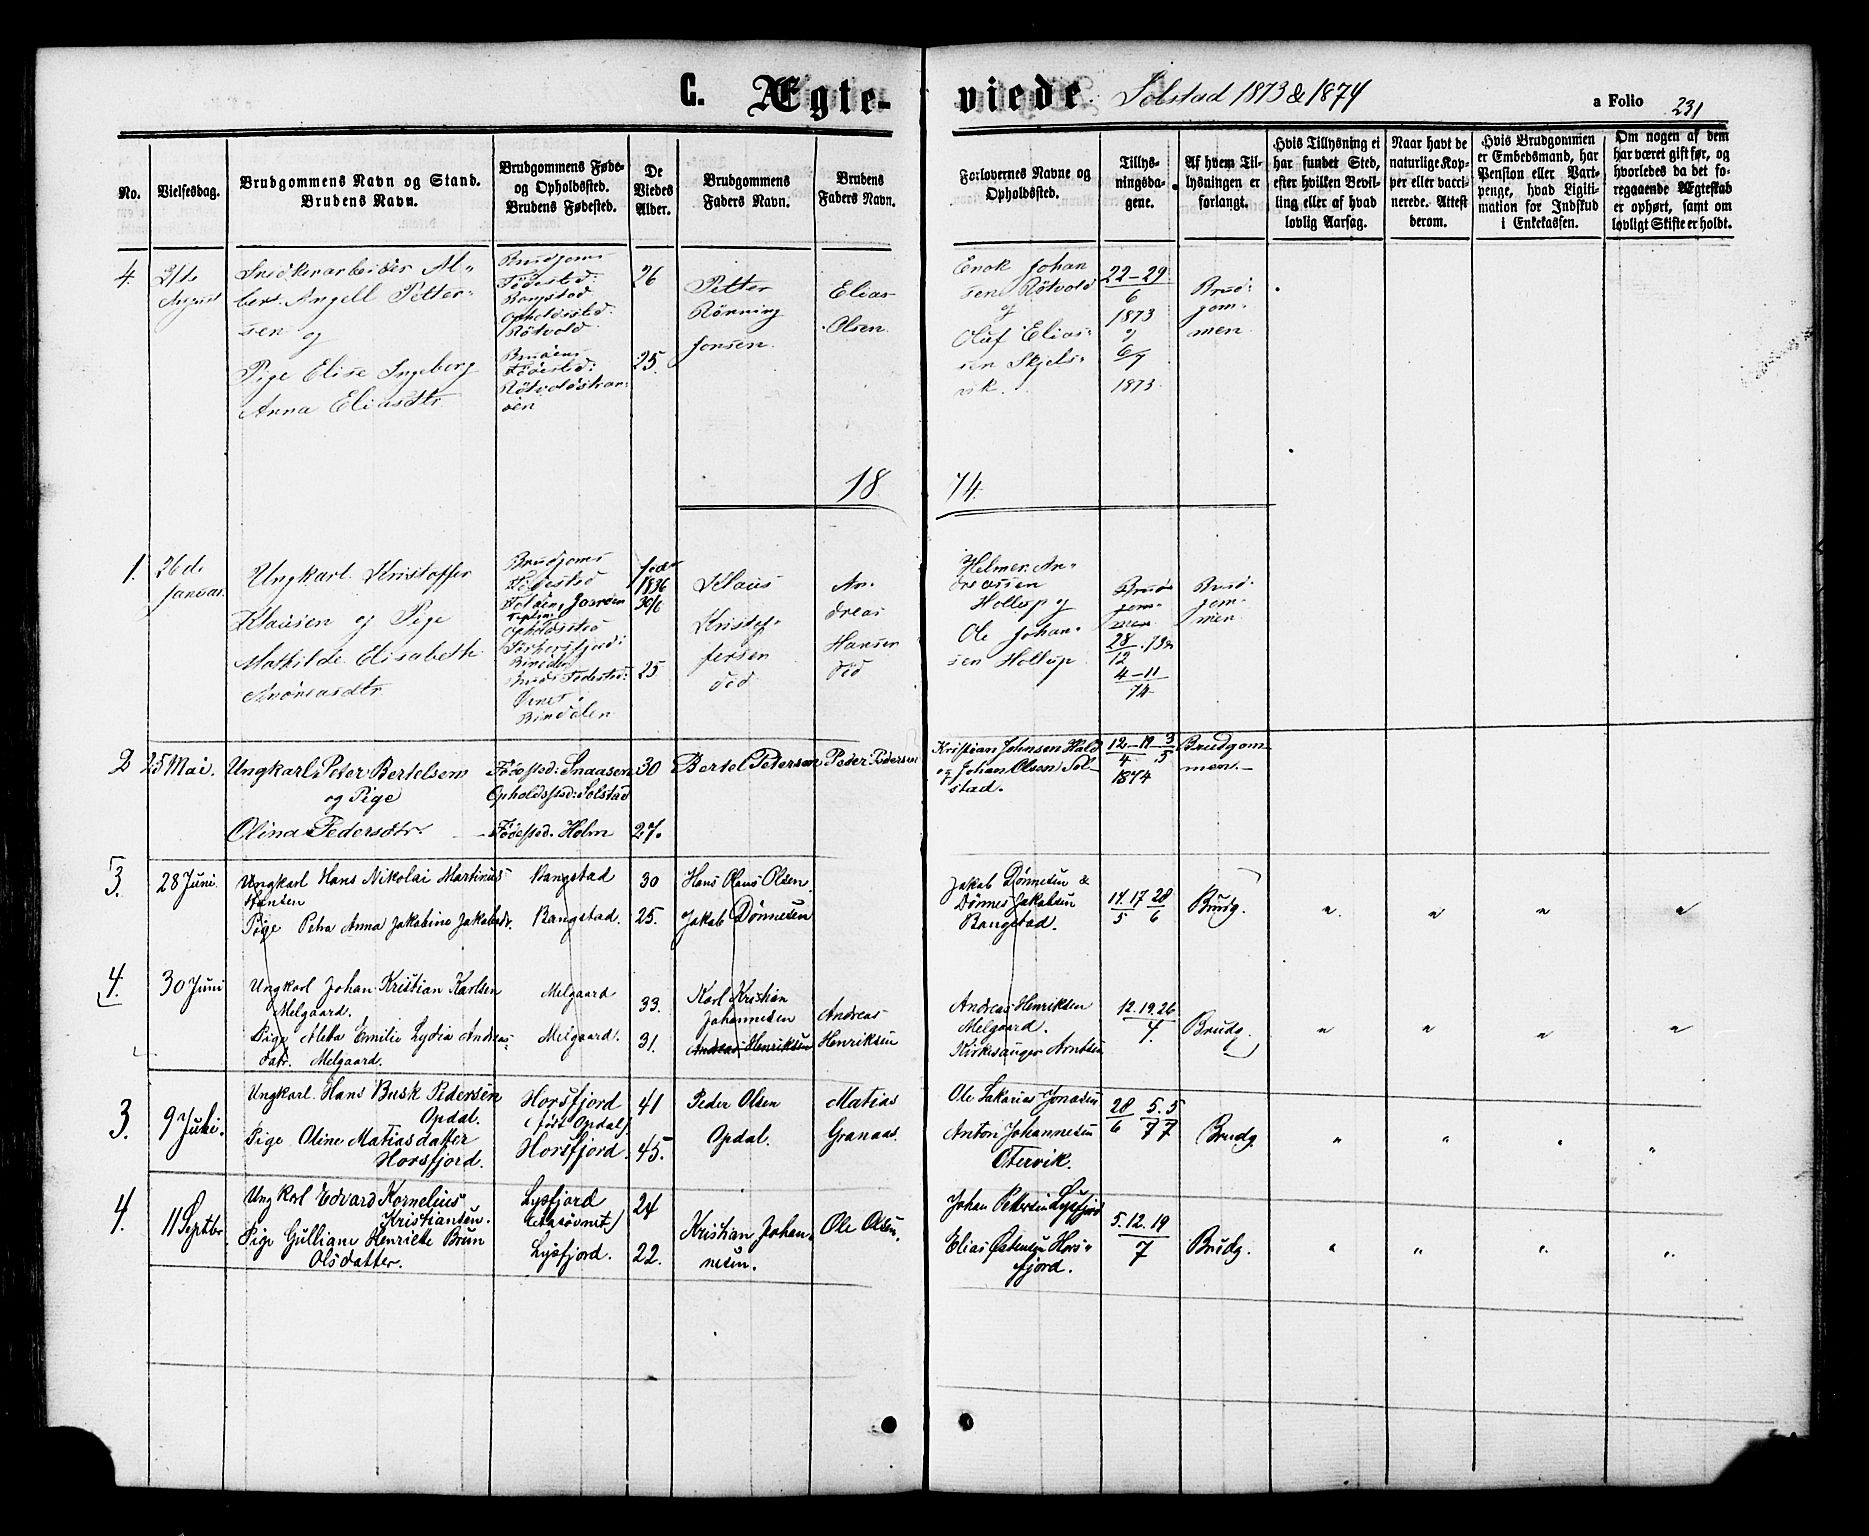 C. Ægte-
viede. Solstad 1873 & 1874
a Folio 231
No.
Vielsesdag.
Brudgommens Navn og Stand.
Brudens Navn.
Brudgommens Føde-
og Opholdssted.
Brudens Fødested.
De
Viedes
Alder.
Brudgommens
Faders Navn.
Brudens
Faders Navn.
Forlovernes Navne og
Opholdssted.
Tillys-
ningsda-
gene.
Af hvem Til-
lysningen er
forlangt.
Hvis Tillysning ei
har fundet Sted,
efter hvilken Bevil-
ling eller af hvad
lovlig Aarsag.
Naar havt de
naturlige Kop-
per eller vacci-
nerede. Attest
derom.
Hvis Brudgommen
er Embedsmand, har
Pension eller Vart-
penge, hvad Ligiti-
mation for Indskud
i Enkekassen.
Om nogen af dem
har været gift før, og
hvorledes da det fo-
regaaende Ægteskab
er ophørt, samt om
lovligt Skifte er holdt.
4.
August
Al-
bert Angell Petter-
sen og
Pige Elise Ingeborg
Anna Eliasdtr.
Brudgoms
Fødested:
Bangstad
Opholdssted:
Røtvold
Brudens
Fødested:
26
25.
Petter
Rønning
Jonsen.
Elias
Olsen.
Enok Johan
sen Røtvold
og
Oluf Elias-
sen Skjels-
vik.
22-29
6
1873
og
6/7
1873
Brud-
gom-
men.
18 74.
1.
26de
Januar.
Ungkarl Kristoffer
Klausen og Pige
Mathilde Elisabeth
Andreasdtr
Brudgoms
Fødested
Opholdssted
Bindalen
Fødested:
Bindalen
født
1836
30/6
25
Klaus
Kristof-
fersen
død
An-
dreas
Hansen
død
Helmer An-
dreassen
Hollup og
Ole Johan-
sen Hollup
Brud-
gom-
men
28
12
4-11
74
Brud-
gom-
men
2
25 Mai.
Ungkarl Peter Bertelsen
og Pige
Olina Pedersdtr.
Fødested: Snaasen
Opholdssted: Solstad
Fødested. Holm
30
27.
Bertel Petersen
Peder Pedersen
Kristian Johnsen Hald
og Johan Olsen Sol-
stad.
12-19 3
4 5
1874
Brudgom
men.
3.
28 Juni.
Ungkarl Hans Nikolai Martinus
Hansen
Pige Petra Anna Jakobine Jakobsdr.
Vangstad
Bangstad.
30
25.
Hans Klaus Olsen.
Jakob Dønnesen
Jakob Dønnesen &
Dønnes Jakobsen
Bangstad.
14. 17 28
5 6
Brudg.
" " " "
4.
30 Juni
Ungkarl Johan Kristian Karlsen
Melgaard.
Pige Meta Emilie Lydia Andreas-
datr. Melgaard.
Melgaard
Melgaard.
33.
31.
Karl Kristian
Johannesen
Andreas Henriksen
Andreas
Henriksen
Andreas Henriksen
Melgaard.
Kirkesanger Arntsen
12. 19. 26
4.
Brudg.
" " " "
3.
9 Juli.
Ungkarl. Hans Busk Pedersen
Opdal.
Pige Oline Matiasdatter
Horsfjord.
Horsfjord
(født Opdal)
Horsfjord.
41
45.
Peder Olsen
Opdal.
Matias
Granaas.
Ole Sakarias Jonasen
Anton Johannesen
Otervik.
28 5. 5
6 7 7
Brudg.
" " " "
4.
11 Septbr.
Ungkarl Edvard Kornelius
Kristiansen.
Pige Gulliane Henriette Brun
Olsdatter.
Lysfjord
Lysfjord.
24
22.
Kristian Johan-
nesen.
Ole Olsen.
Johan Pettersen Lysfjord
Elias Østensen Hors-
fjord.
5. 12. 19
7
Brudg.
" " " "